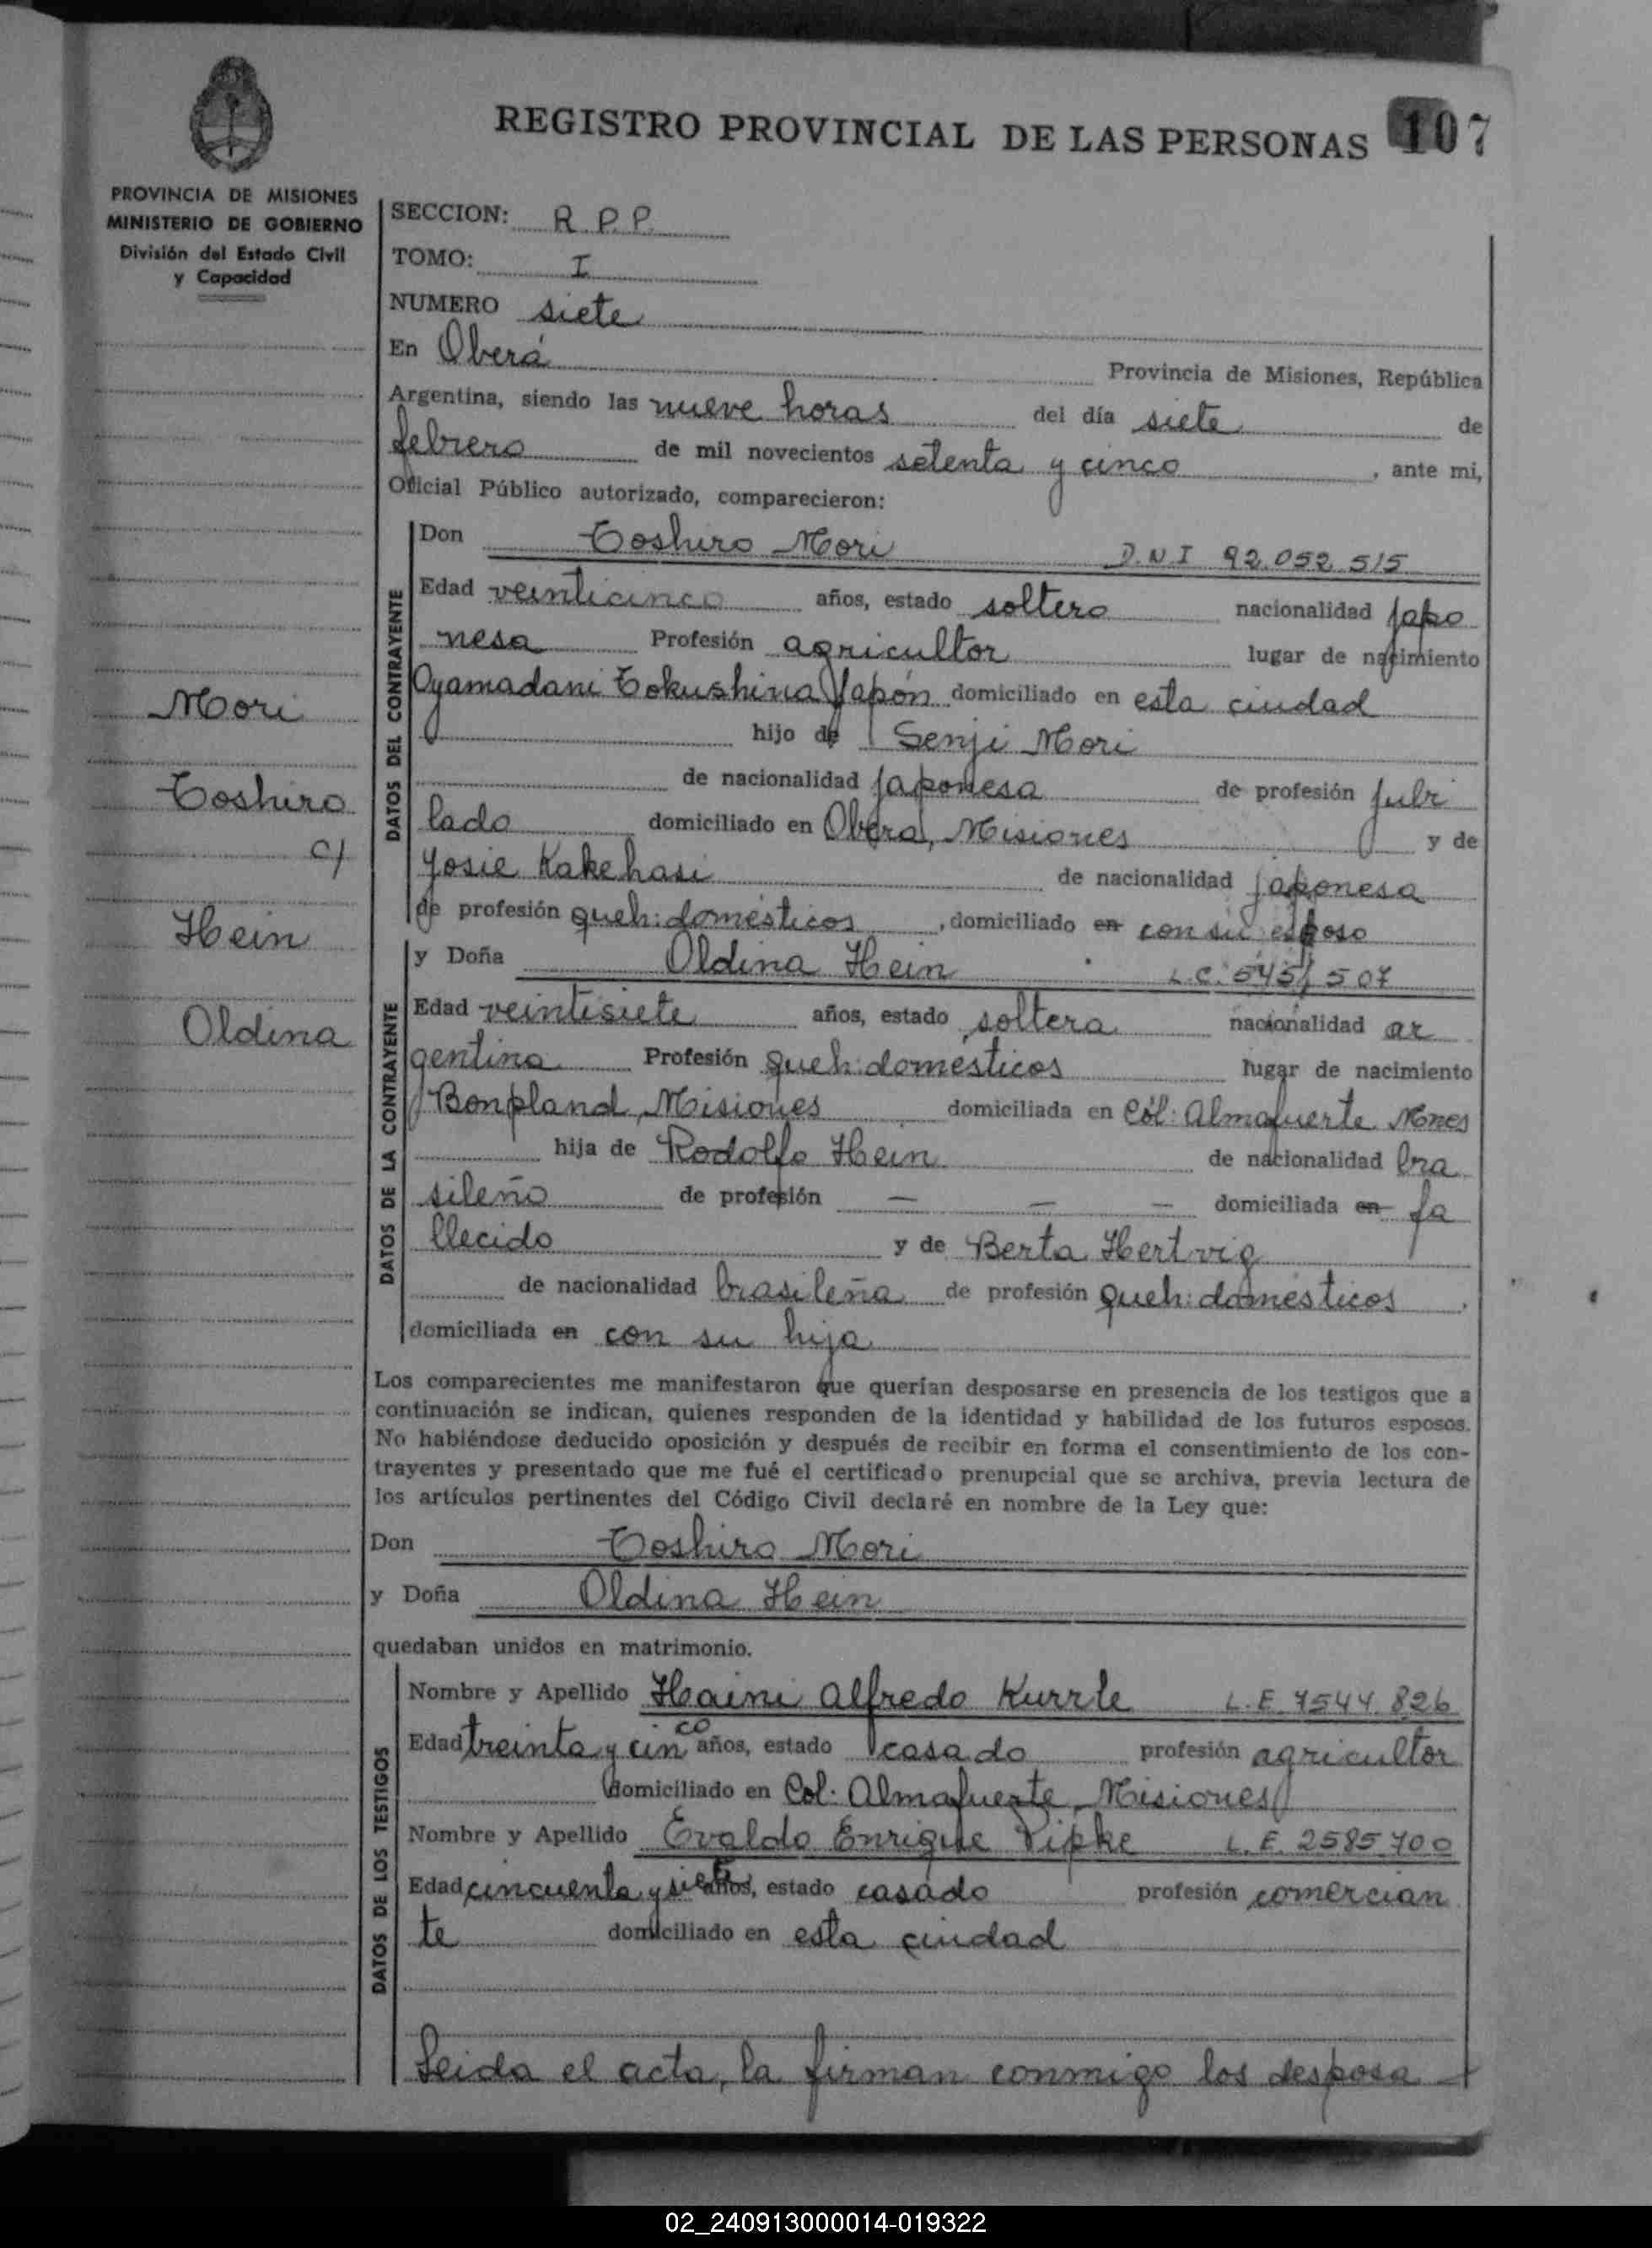 REGISTRO PROVINCIAL DE LAS PERSONAS 107
PROVINCIA DE MISIONES
MINISTERIO DE GOBIERNO
División del Estado Civil
y Capacidad
SECCION: R.P.P.
TOMO: I
NUMERO siete
En Oberá Provincia de Misiones, República
Argentina, siendo las nueve horas del día siete de
febrero de mil novecientos setenta y cinco, ante mi,
Oficial Público autorizado, comparecieron:
Mori
Toshiro
c/
Hein
Oldina
DATOS DEL CONTRAYENTE
Don Toshiro Mori D.N.I 92.052.515
Edad veinticinco años, estado soltero nacionalidad japo
nesa Profesión agricultor lugar de nacimiento
Oyamadani Tokushima Japón domiciliado en esta ciudad
hijo de Senji Mori
de nacionalidad japonesa de profesión jubi
lado domiciliado en Oberá, Misiones y de
Yosie Kakehasi de nacionalidad japonesa
de profesión queh: domésticos, domiciliado en con su esposo
DATOS DE LA CONTRAYENTE
y Doña Oldina Hein L.C. 5451507
Edad veintisiete años, estado soltera nacionalidad ar
gentina Profesión queh: domésticos lugar de nacimiento
Bonpland, Misiones domiciliada en Col: Almafuerte Mnes
hija de Rodolfo Hein de nacionalidad bra
sileño de profesión — — — domiciliada en fa
llecido y de Berta Hertvig
de nacionalidad brasileña de profesión queh: domésticos,
domiciliada en con su hija
Los comparecientes me manifestaron que querían desposarse en presencia de los testigos que a
continuación se indican, quienes responden de la identidad y habilidad de los futuros esposos.
No habiéndose deducido oposición y después de recibir en forma el consentimiento de los con-
trayentes y presentado que me fué el certificado prenupcial que se archiva, previa lectura de
los artículos pertinentes del Código Civil declaré en nombre de la Ley que:
Don Toshiro Mori
y Doña Oldina Hein
quedaban unidos en matrimonio.
DATOS DE LOS TESTIGOS
Nombre y Apellido Haini Alfredo Kurrle L.E. 7544.826
Edad treinta y cinco años, estado casado profesión agricultor
domiciliado en Col: Almafuerte, Misiones
Nombre y Apellido Evaldo Enrique Pipke L.E. 2585700
Edad cincuenta y siete años, estado casado profesión comercian
te domiciliado en esta ciudad
Leida el acta, la firman conmigo los desposa
02_240913000014-019322